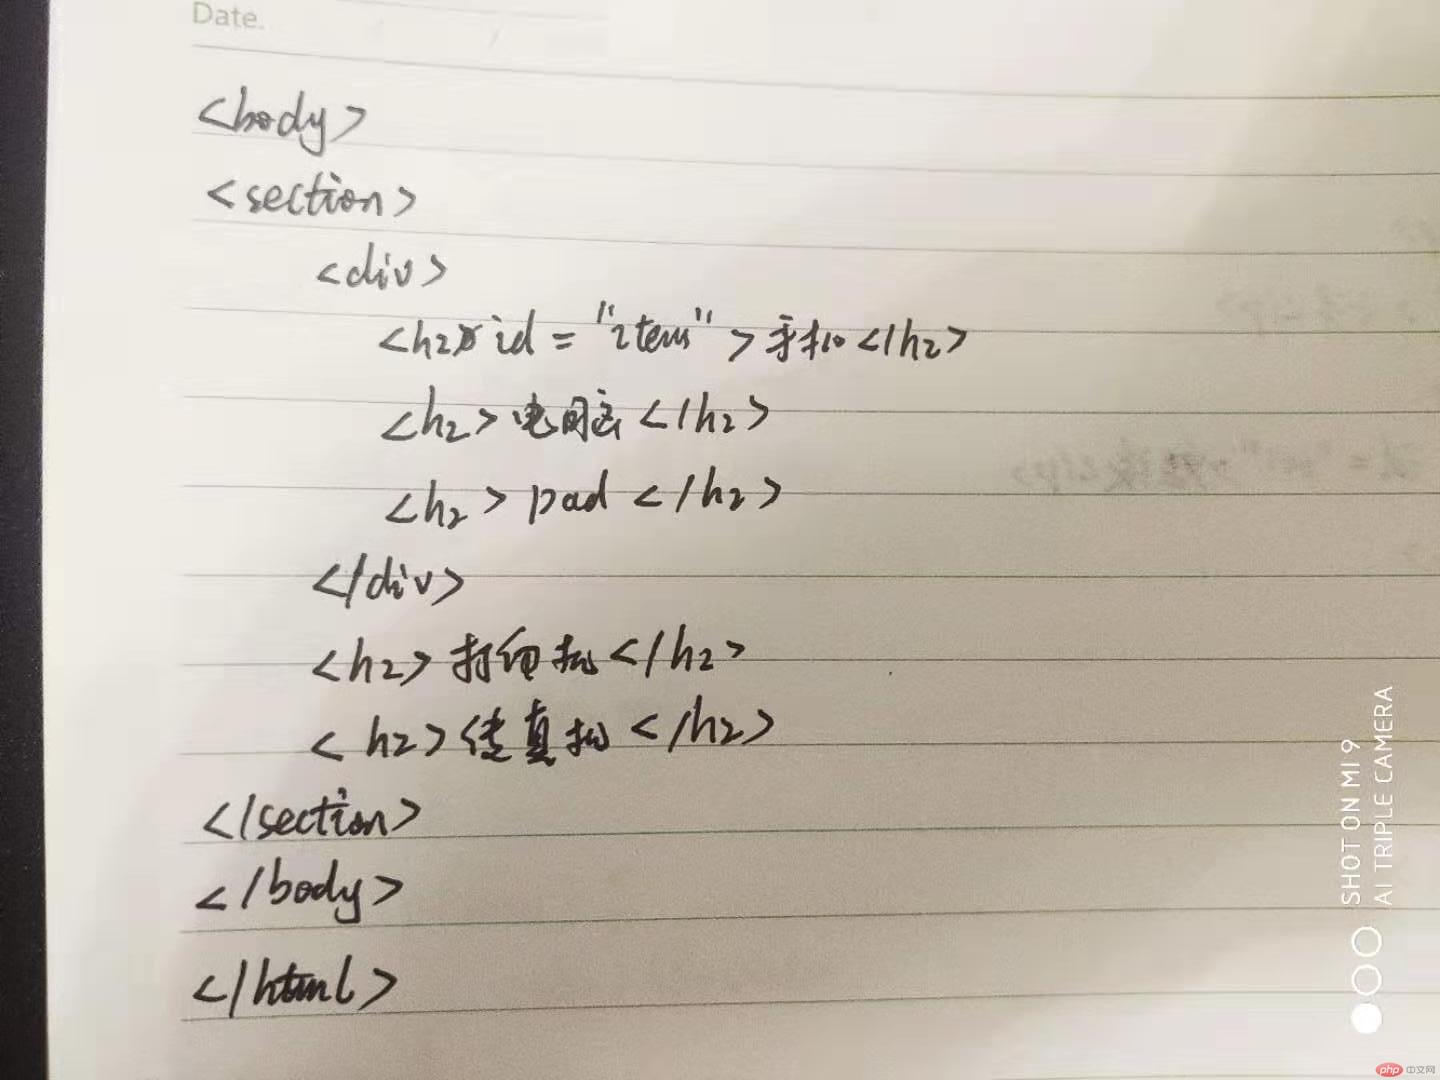 Date.
<body>
<section>
<div>
<h2 id="item">手机</h2>
<h2>电脑</h2>
<h2>pad</h2>
</div>
<h2>打印机</h2>
<h2>传真机</h2>
</section>
</body>
</html>
SHOT ON MI 9
AI TRIPLE CAMERA
php 中文网